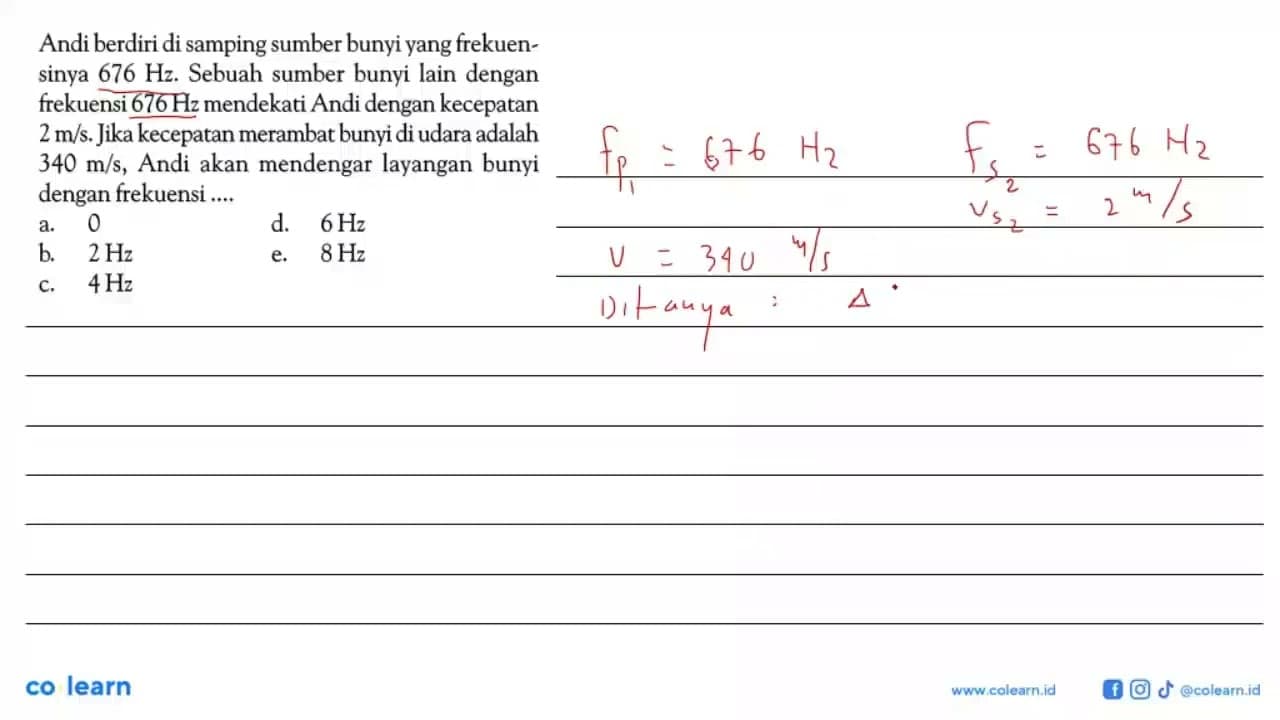 Andi berdiri di samping sumber bunyi yang frekuen-
sinya 676 Hz. Sebuah sumber bunyi lain dengan
frekuensi 676 Hz mendekati Andi dengan kecepatan
2 m/s. Jika kecepatan merambat bunyi di udara adalah
340 m/s, Andi akan mendengar layangan bunyi
dengan frekuensi ....
a. 0 d. 6 Hz
b. 2 Hz e. 8 Hz
c. 4 Hz
fp1 = 676 Hz fs2 = 676 Hz
vs2 = 2 m/s
v = 340 m/s
Ditanya : Δ
co learn
www.colearn.id @colearn.id